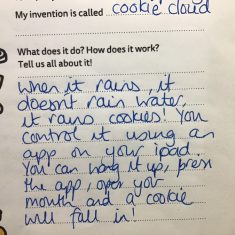 My invention is called cookie cloud
What does it do? How does it work?
Tell us all about it!
When it rains, it
doesnt rain water,
it rains cookies! You
control it using an
app on your ipad.
You can hang it up, press
the app, open your
mouth and a cookie
will fall in!